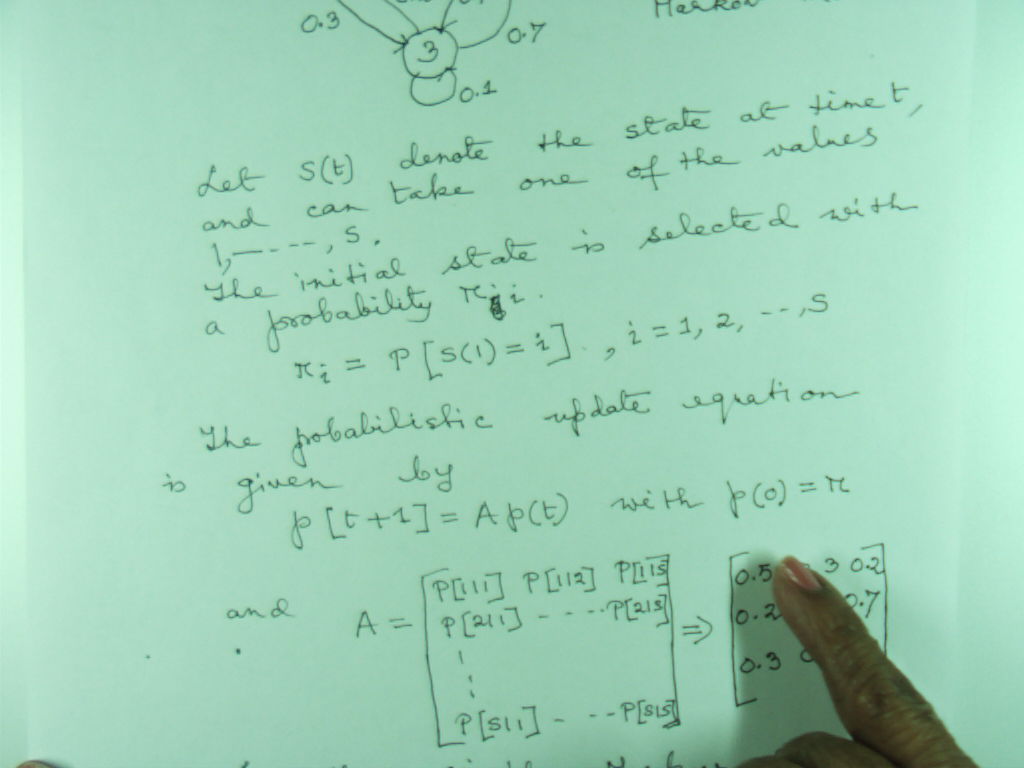 0.3
0.7
3
0.1
Let S(t) denote the state at time t,
and can take one of the values
1, ----, S.
The initial state is selected with
a probability π i.
π i = P[S(1) = i]. , i = 1, 2, --, S
The probabilistic update equation
is given by
p[t+1] = A p(t) with p(0) = π
and A = [P[1|1] P[1|2] P[1|S]
P[2|1] - - - - P[2|S]
P[S|1] - - - P[S|S]]
⇒ [0.5 3 0.2
0.2 0.7
0.3